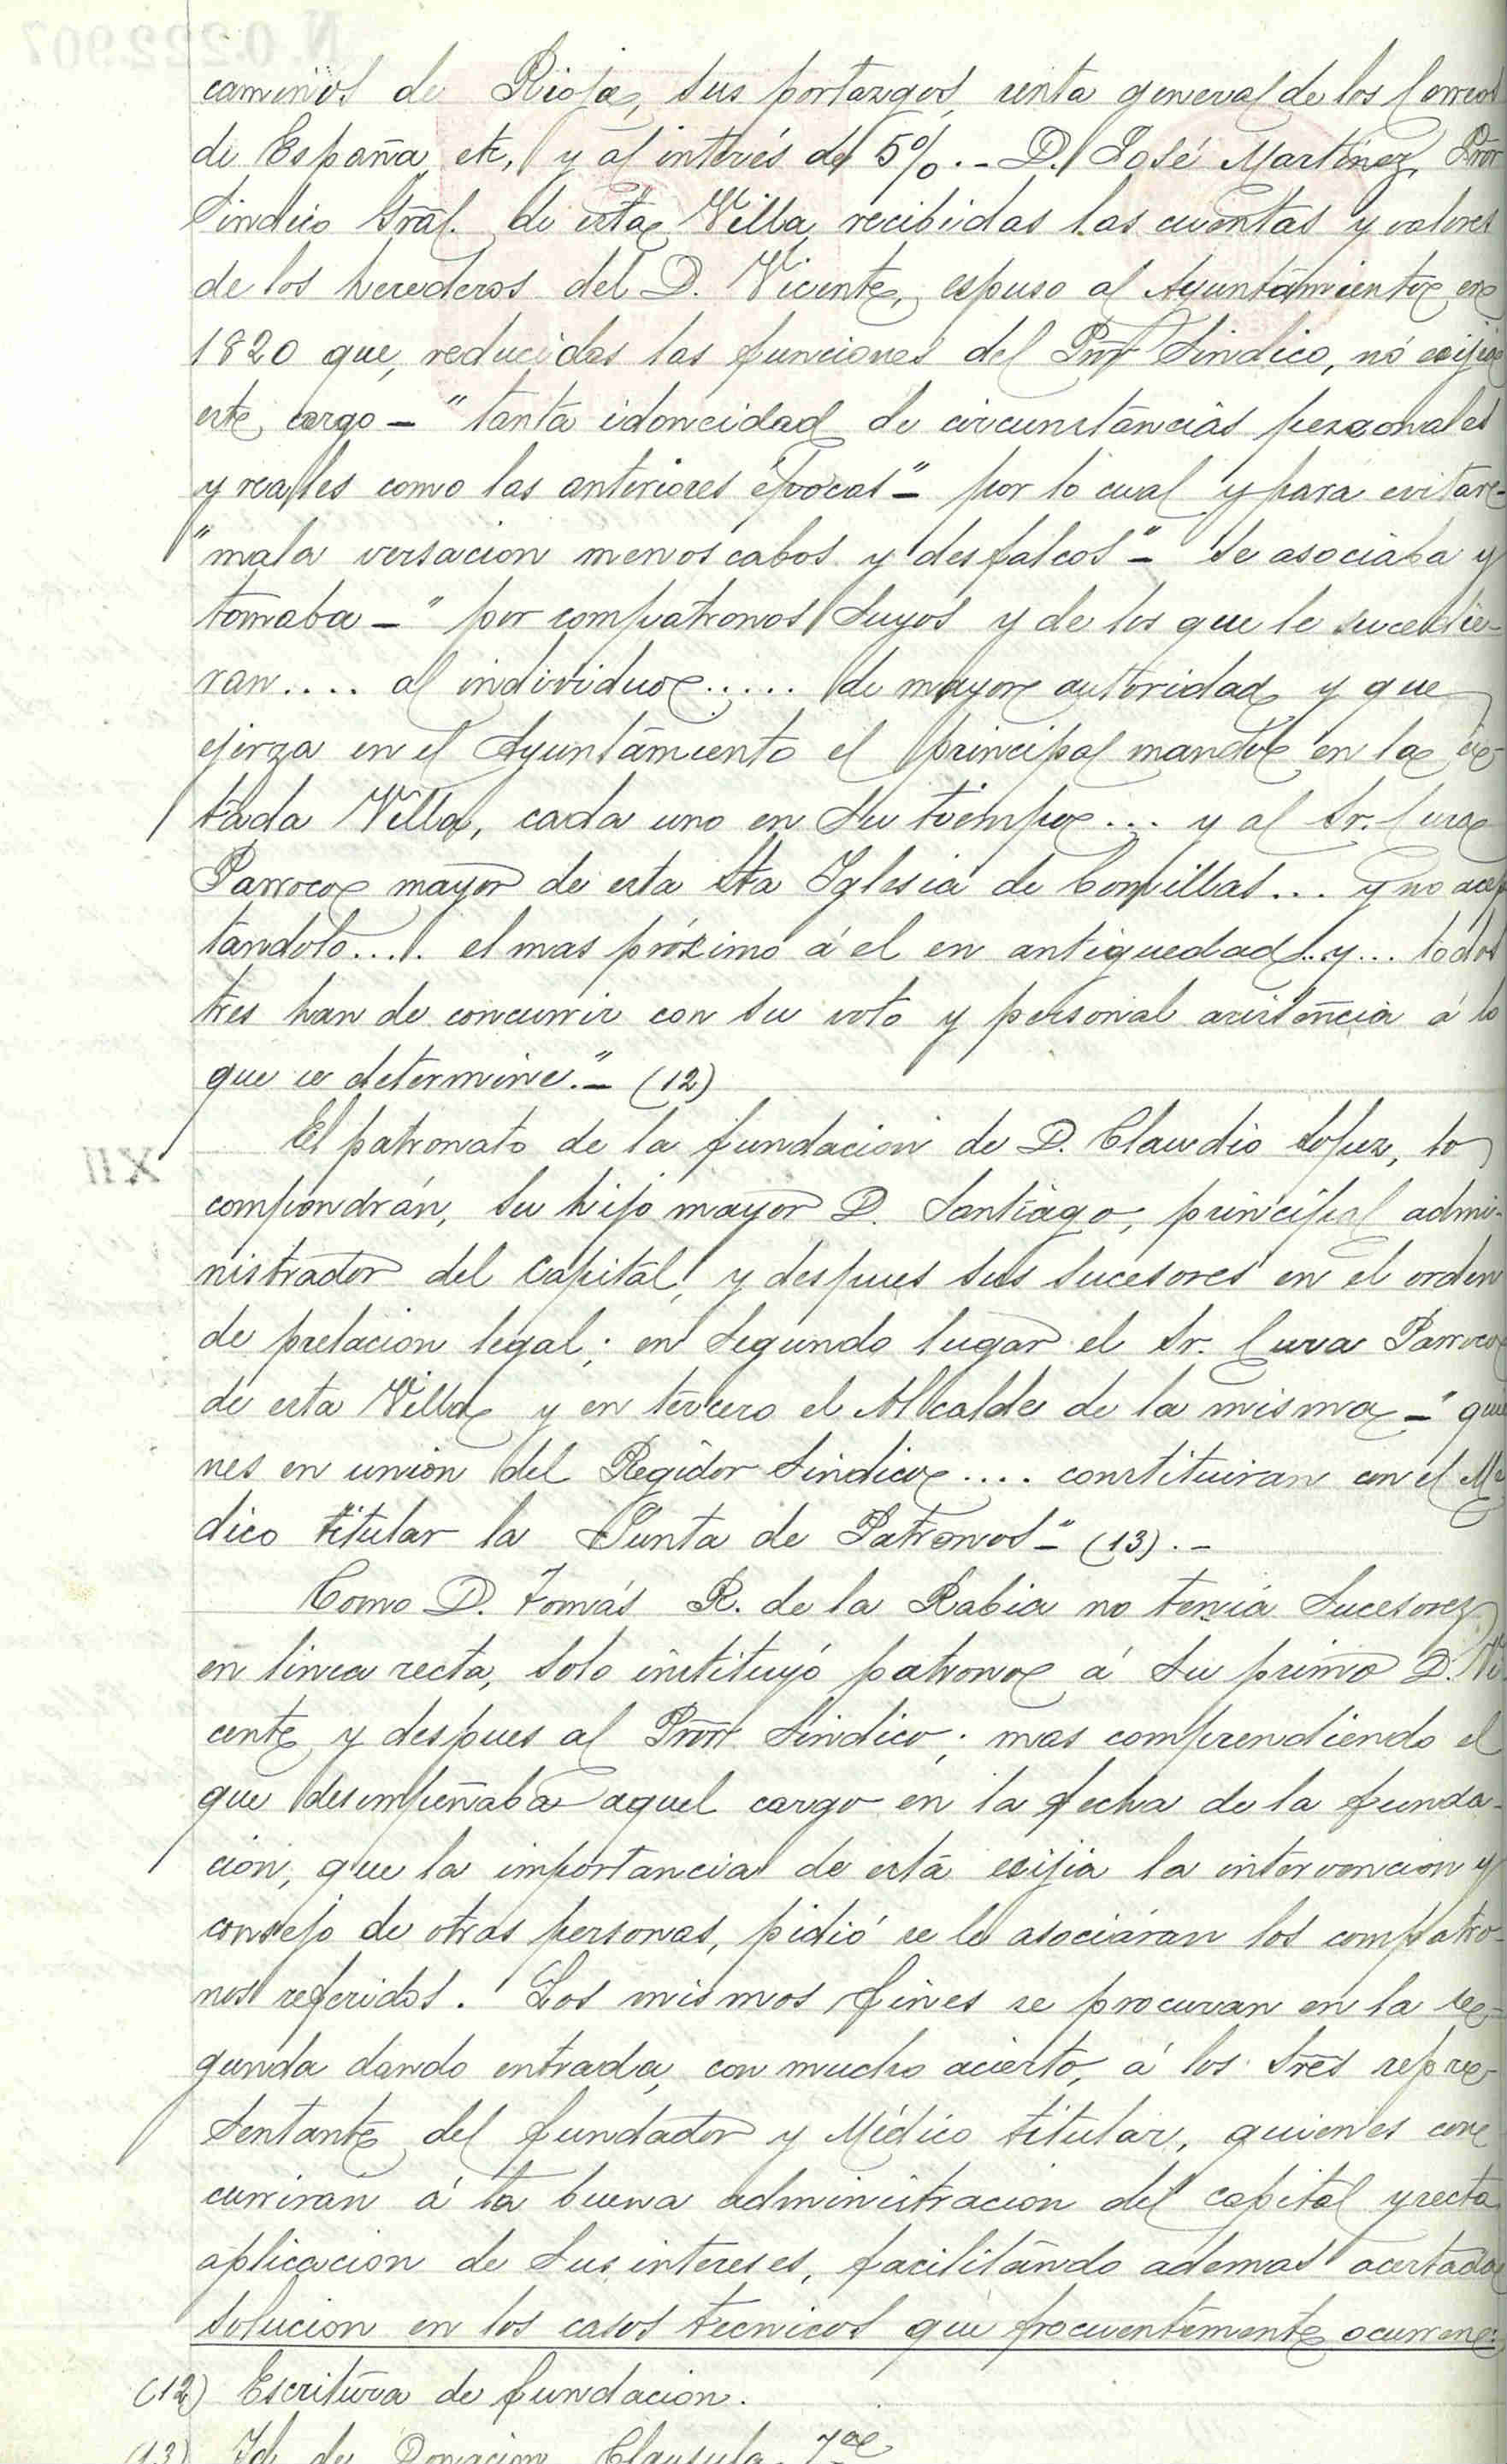 caminos de Rioja, sus portazgos, renta general de los Correos
de España, etc, y al interés del 5%.- D. José Martinez, Pror
Sindico Gral. de esta Villa recibidas las cuentas y valores
de los herederos del D. Vicente, espuso al Ayuntamiento en
1820 que, reducidas las funciones del Pror Sindico, nó exijia
este cargo - "tanta idoneidad de circunstancias personales
y reales como las anteriores épocas" - por lo cual y para evitar -
"mala versacion menoscabos y desfalcos" - se asociaba y
tomaba - "por compatronos suyos y de los que le sucedie-
ran .... al individuo ..... de mayor autoridad y que
ejerza en el Ayuntamiento el principal mando en la ci-
tada Villa, cada uno en su tiempo ... y al Sr. Cura
Parroco mayor de esta Sta Iglesia de Comillas ... y no acep
tandolo ..... el mas próximo á el en antiguedad .. y ... todos
tres han de concurrir con su voto y personal asistencia á lo
que se determine." - (12)
El patronato de la fundacion de D. Claudio Lopez, lo
compondrán, su hijo mayor D. Santiago, principal admi-
nistrador del capital, y despues sus sucesores en el orden
de prelacion legal; en segundo lugar el Sr. Cura Parroco
de esta Villa y en tercero el Alcalde de la misma - "quie
nes en union del Regidor Sindico .... constituiran con el Mé
dico titular la Junta de Patronos" - (13). -
Como D. Tomás R. de la Rabia no tenia sucesores
en linea recta, solo instituyó patrono á su primo D. Vi
cente y despues al Pror Sindico; mas comprendiendo el
que desempeñaba aquel cargo en la fecha de la funda-
cion, que la importancia de esta exijia la intervencion y
consejo de otras personas, pidió se le asociáran los compatro-
nos referidos. Los mismos fines se procuran en la se-
gunda dando entrada, con mucho acierto, á los Sres repre-
sentante del fundador y Médico titular, quienes con
currirán á la buena administracion del capital y recta
aplicacion de sus intereses, facilitando ademas acertada
solucion en los casos tecnicos que frecuentemente ocurren.
(12) Escritura de fundacion.
(13) Id. de Donacion Clausula 7ª
XII
N. 0.222.907